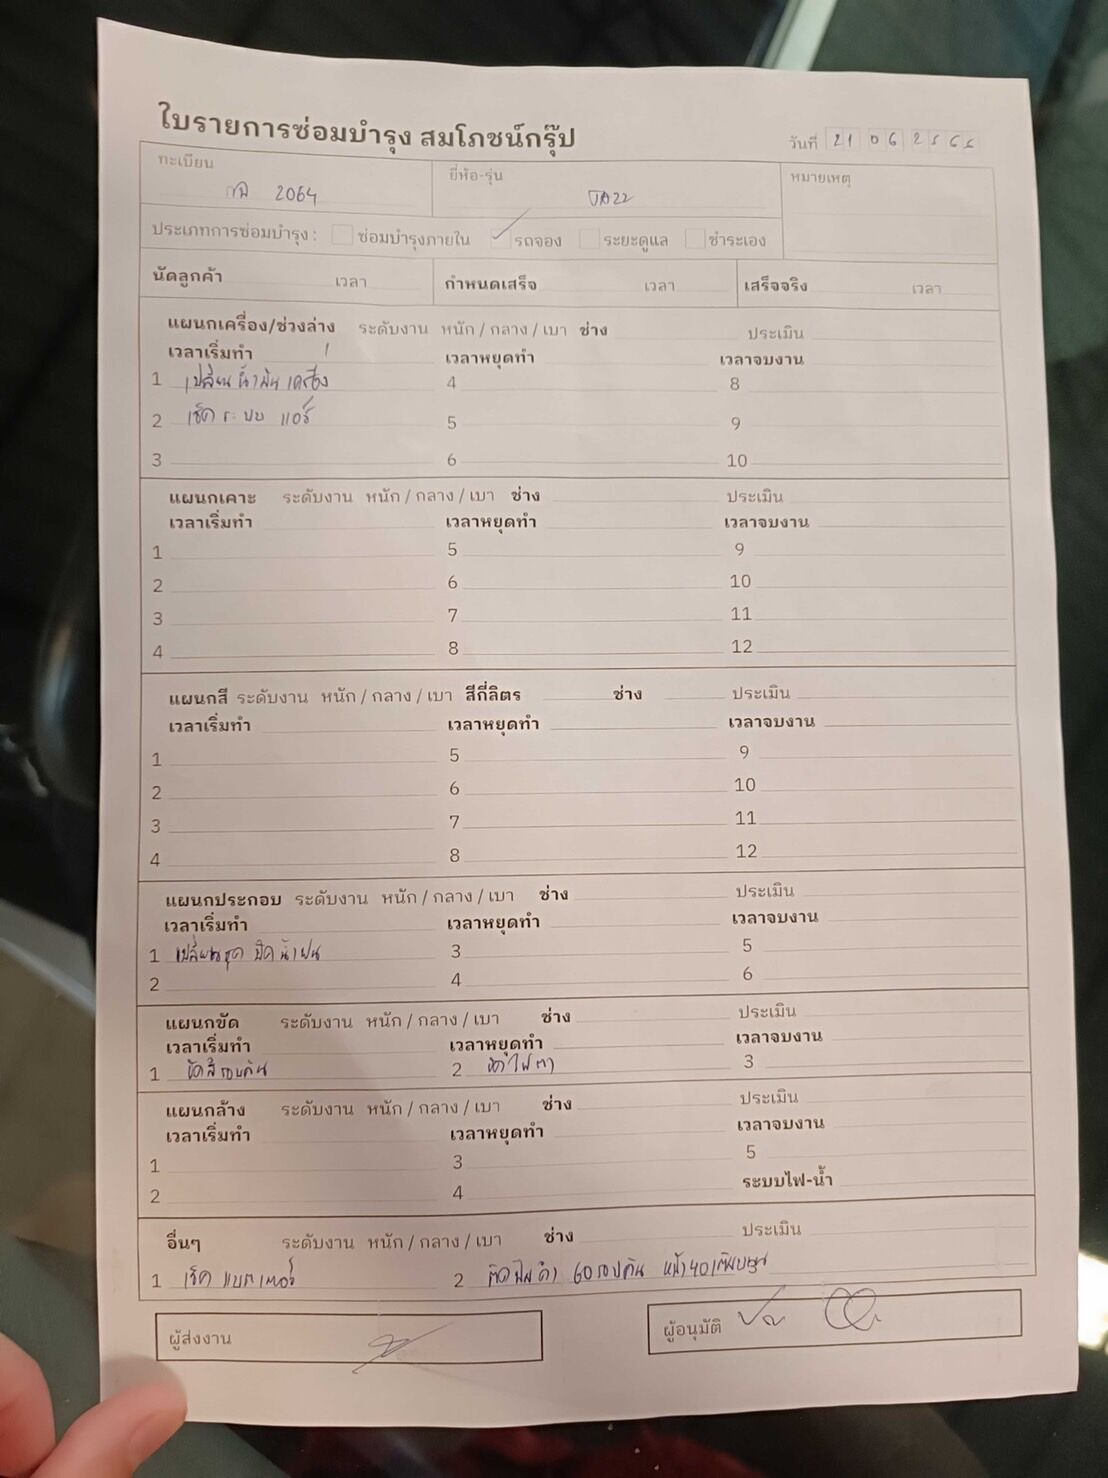 ใบรายการซ่อมบำรุง สมโภชน์กรุ๊ป
วันที่ 21 06 2565
ทะเบียน
2064
ยี่ห้อ-รุ่น
JAZZ
หมายเหตุ
ประเภทการซ่อมบำรุง : ซ่อมบำรุงภายใน รถจอง ระยะดูแล ชำระเอง
นัดลูกค้า เวลา กำหนดเสร็จ เวลา เสร็จจริง เวลา
แผนกเครื่อง/ช่วงล่าง ระดับงาน หนัก / กลาง / เบา ช่าง ประเมิน
เวลาเริ่มทำ เวลาหยุดทำ เวลาจบงาน
1 เปลี่ยนน้ำมันเครื่อง 4 8
2 เช็คระบบ แอร์ 5 9
3 6 10
แผนกเคาะ ระดับงาน หนัก / กลาง / เบา ช่าง ประเมิน
เวลาเริ่มทำ เวลาหยุดทำ เวลาจบงาน
1 5 9
2 6 10
3 7 11
4 8 12
แผนกสี ระดับงาน หนัก / กลาง / เบา สีกี่ลิตร ช่าง ประเมิน
เวลาเริ่มทำ เวลาหยุดทำ เวลาจบงาน
1 5 9
2 6 10
3 7 11
4 8 12
แผนกประกอบ ระดับงาน หนัก / กลาง / เบา ช่าง ประเมิน
เวลาเริ่มทำ เวลาหยุดทำ เวลาจบงาน
1 เปลี่ยนชุด ปัดน้ำฝน 3 5
2 4 6
แผนกขัด ระดับงาน หนัก / กลาง / เบา ช่าง ประเมิน
เวลาเริ่มทำ เวลาหยุดทำ เวลาจบงาน
1 ขัดสีรอบคัน 2 ขัดไฟตา 3
แผนกล้าง ระดับงาน หนัก / กลาง / เบา ช่าง ประเมิน
เวลาเริ่มทำ เวลาหยุดทำ เวลาจบงาน
1 3 5
2 4 ระบบไฟ-น้ำ
อื่นๆ ระดับงาน หนัก / กลาง / เบา ช่าง ประเมิน
1 เช็ค แบตเตอรี่ 2 ติดฟิล์มดำ 60 รอบคัน หน้า 40 เต็มบาน
ผู้ส่งงาน
ผู้อนุมัติ